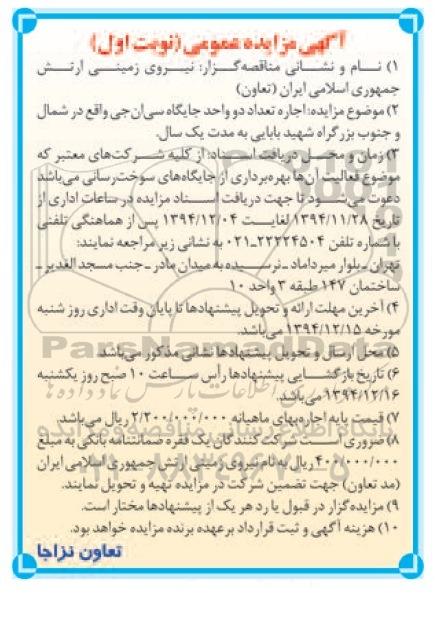 آگهی مزایده عمومی (نوبت اول)
۱) نـام و نشـانی مناقصه‌گـزار: نیـروی زمینـی ارتـش
جمهوری اسلامی ایران (تعاون)
۲) موضوع مزایده: اجاره تعداد دو واحد جایگاه سی‌ان‌جی واقع در شمال
و جنوب بزرگراه شهید بابایی به مدت یک سال.
۳) زمان و محـل دریافت اسـناد: از کلیه شـرکت‌های معتبر که
موضوع فعالیت آن‌ها بهره‌برداری از جایگاه‌های سوخت‌رسانی می‌باشد
دعوت می‌شـود تا جهت دریافت اسـناد مزایده در ساعات اداری از
تاریخ ۱۳۹۴/۱۱/۲۸ لغایت ۱۳۹۴/۱۲/۰۴ پس از هماهنگی تلفنی
با شماره تلفن ۲۲۲۲۴۵۰۴-۰۲۱ به نشانی زیر مراجعه نمایند:
تهران ـ بلوار میرداماد ـ نرسـیده به میدان مادر ـ جنب مسجد الغدیر ـ
ساختمان ۱۴۷ طبقه ۳ واحد ۱۰
۴) آخرین مهلت ارائه و تحویل پیشنهادها تا پایان وقت اداری روز شنبه
مورخه ۱۳۹۴/۱۲/۱۵ می‌باشد.
۵) محل ارسال و تحویل پیشنهادها نشانی مذکور می‌باشد
۶) تاریخ بازگشـایی پیشنهادها رأس سـاعت ۱۰ صبح روز یکشنبه
۱۳۹۴/۱۲/۱۶ می‌باشد.
۷) قیمت پایه اجاره‌بهای ماهیانه ۲/۲۰۰/۰۰۰/۰۰۰ ریال می‌باشد.
۸) ضروری اسـت شرکت‌کنندگان یک فقره ضمانتنامه بانکی به مبلغ
۴۰۰/۰۰۰/۰۰۰ ریال به نام نیروی زمینی ارتش جمهوری اسلامی ایران
(مد تعاون) جهت تضمین شرکت در مزایده تهیه و تحویل نمایند.
۹) مزایده‌گزار در قبول یا رد هر یک از پیشنهادها مختار است.
۱۰) هزینه آگهی و ثبت قرارداد بر عهده برنده مزایده خواهد بود.
تعاون نزاجا
ParsNamadData